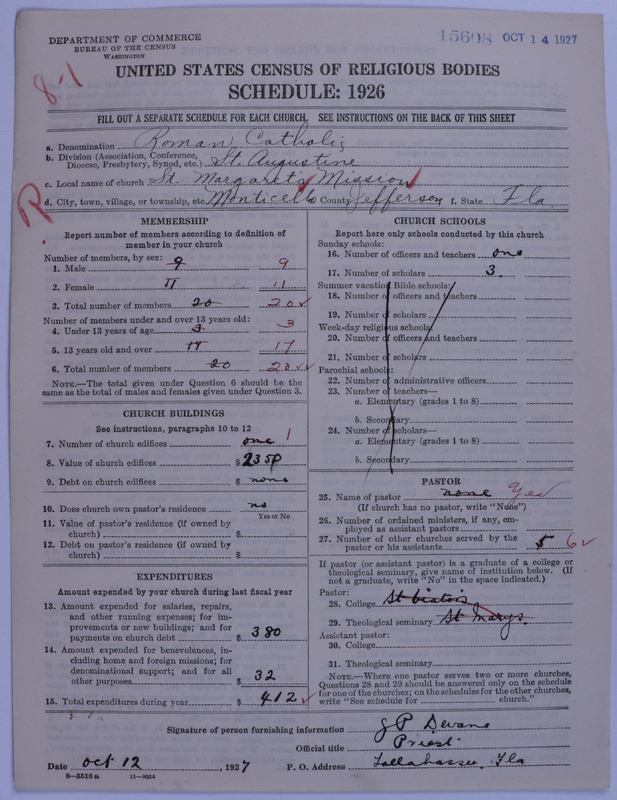 DEPARTMENT OF COMMERCE
BUREAU OF THE CENSUS
WASHINGTON
15608 OCT 14 1927
8-1
UNITED STATES CENSUS OF RELIGIOUS BODIES
SCHEDULE: 1926
FILL OUT A SEPARATE SCHEDULE FOR EACH CHURCH. SEE INSTRUCTIONS ON THE BACK OF THIS SHEET
a. Denomination Roman Catholic
b. Division (Association, Conference, Diocese, Presbytery, Synod, etc.) St. Augustine
c. Local name of church St. Margaret's Mission
d. City, town, village, or township, etc. Monticello County Jefferson f. State Fla.
R.
MEMBERSHIP
Report number of members according to definition of
member in your church
Number of members, by sex:
1. Male 9 9
2. Female 11 11
3. Total number of members 20 20
Number of members under and over 13 years old:
4. Under 13 years of age 3 3
5. 13 years old and over 17 17
6. Total number of members 20 20
NOTE.—The total given under Question 6 should be the
same as the total of males and females given under Question 3.
CHURCH BUILDINGS
See instructions, paragraphs 10 to 12
7. Number of church edifices one 1
8. Value of church edifices $
9. Debt on church edifices $ none
10. Does church own pastor's residence no
Yes or No
11. Value of pastor's residence (if owned by
church) $
12. Debt on pastor's residence (if owned by
church) $
EXPENDITURES
Amount expended by your church during last fiscal year
13. Amount expended for salaries, repairs,
and other running expenses; for im-
provements or new buildings; and for
payments on church debt $ 380
14. Amount expended for benevolences, in-
cluding home and foreign missions; for
denominational support; and for all
other purposes $ 32
15. Total expenditures during year $ 412
CHURCH SCHOOLS
Report here only schools conducted by this church
Sunday schools:
16. Number of officers and teachers one
17. Number of scholars 3
Summer vacation Bible schools:
18. Number of officers and teachers
19. Number of scholars
Week-day religious schools:
20. Number of officers and teachers
21. Number of scholars
Parochial schools:
22. Number of administrative officers
23. Number of teachers—
a. Elementary (grades 1 to 8)
b. Secondary
24. Number of scholars—
a. Elementary (grades 1 to 8)
b. Secondary
PASTOR
25. Name of pastor none Yes
(If church has no pastor, write "None")
26. Number of ordained ministers, if any, em-
ployed as assistant pastors
27. Number of other churches served by the
pastor or his assistants 5 6
If pastor (or assistant pastor) is a graduate of a college or
theological seminary, give name of institution below. (If
not a graduate, write "No" in the space indicated.)
Pastor:
28. College St Viators
29. Theological seminary St Marys
Assistant pastor:
30. College
31. Theological seminary
NOTE.—Where one pastor serves two or more churches,
Questions 28 and 29 should be answered only on the schedule
for one of the churches; on the schedules for the other churches,
write "See schedule for church."
Signature of person furnishing information J P Devane
Official title Priest
Date Oct 12, 1927 P. O. Address Tallahassee, Fla
8—5518a 11—9064